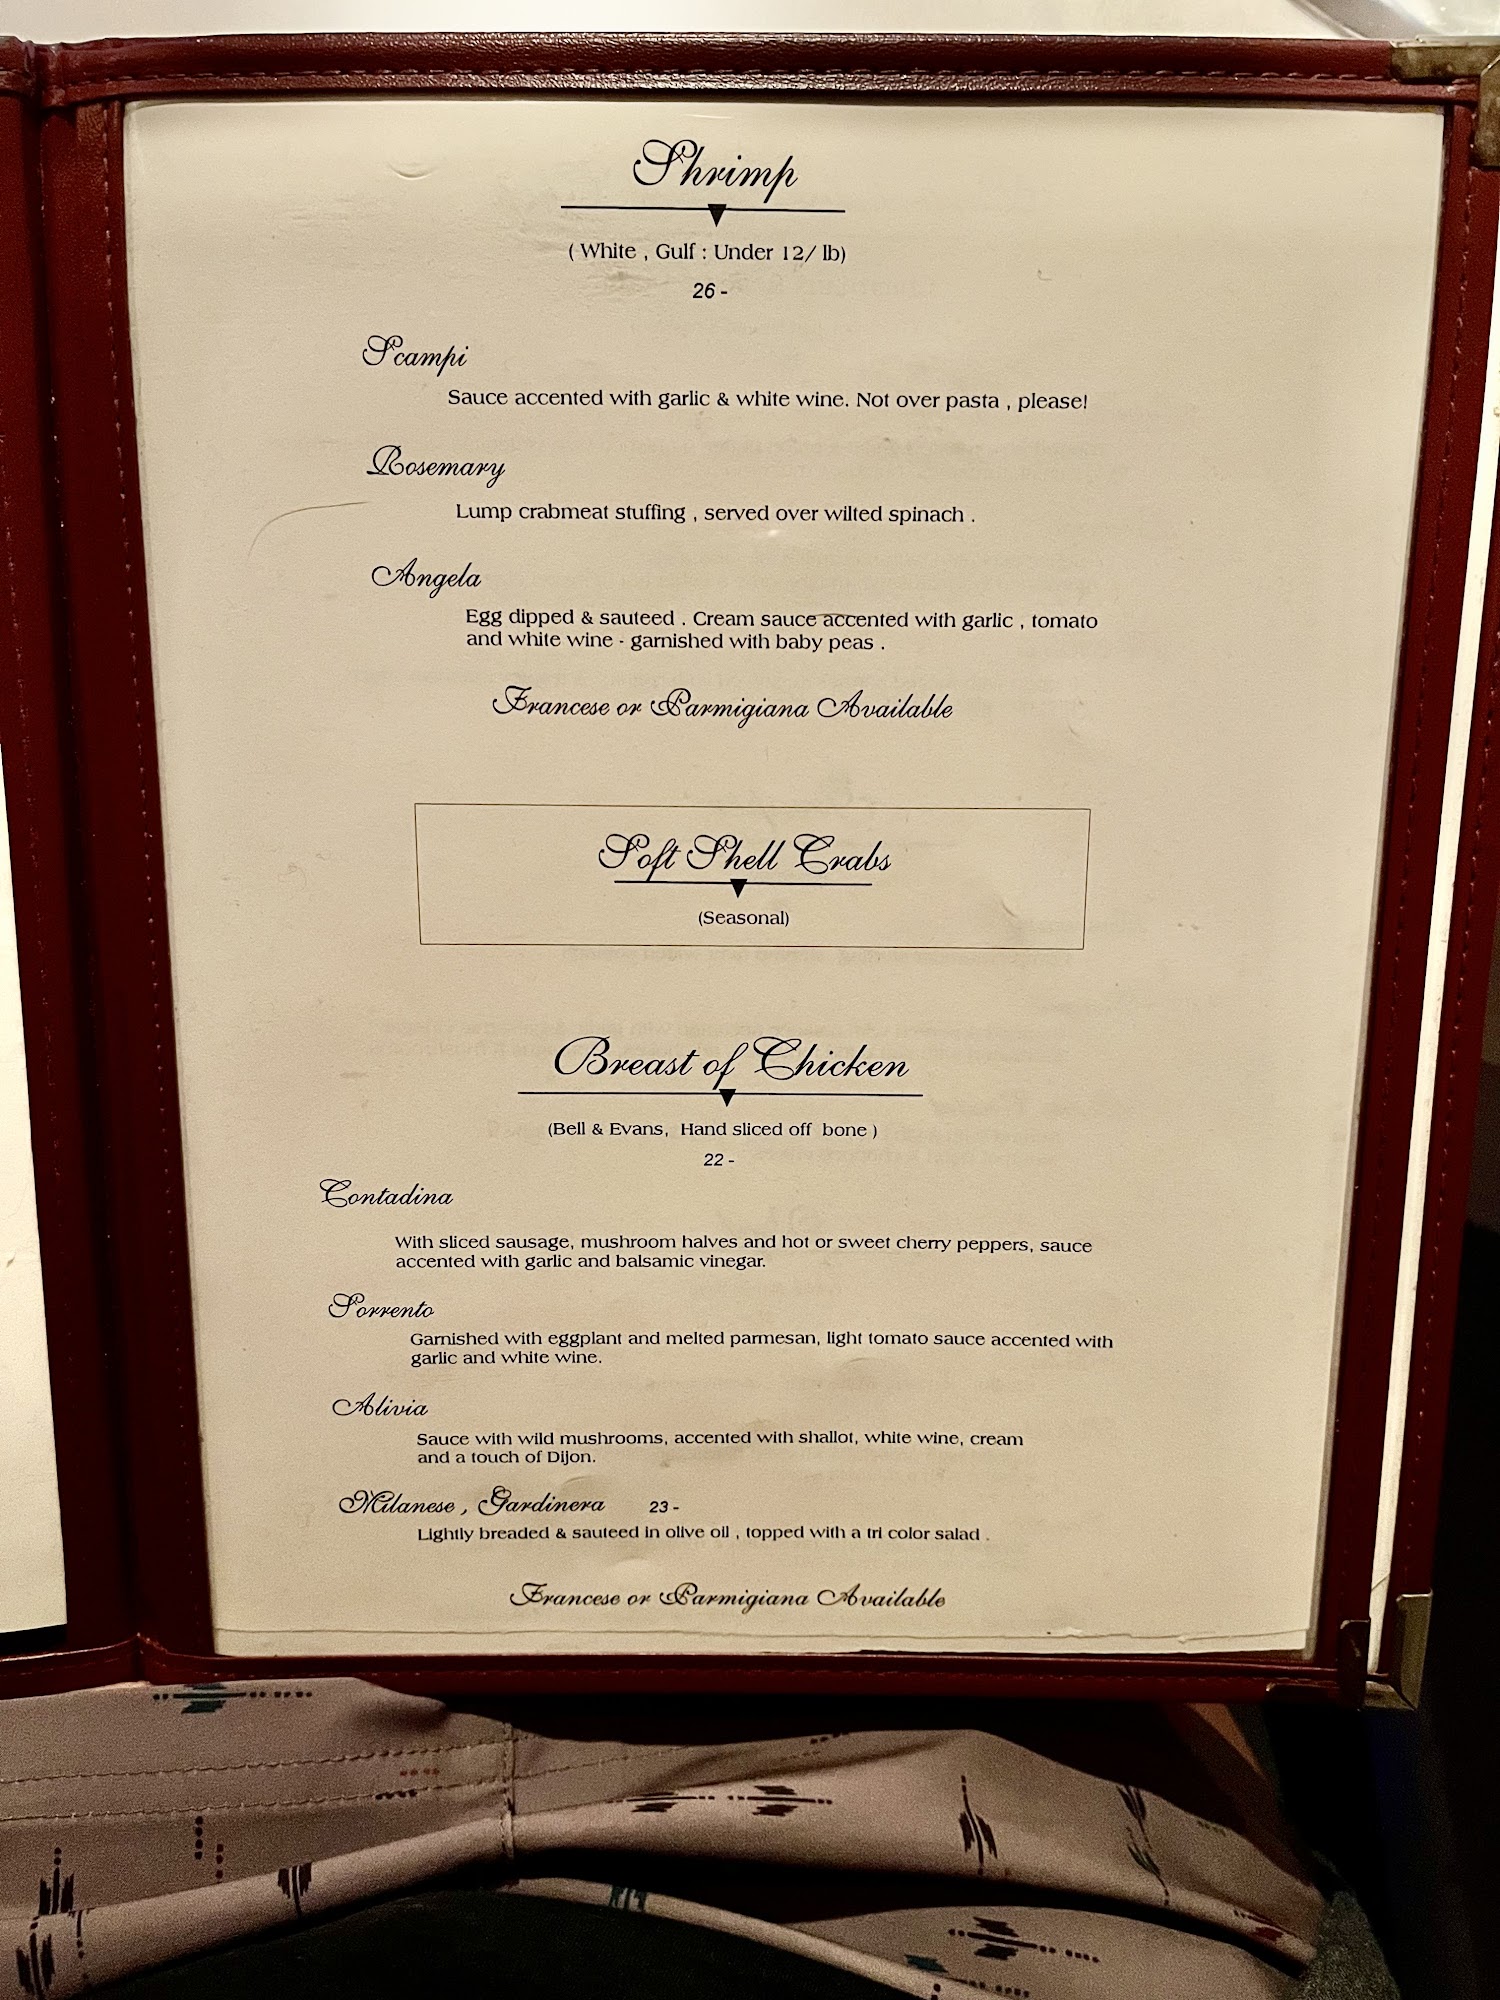 Shrimp
( White , Gulf : Under 12/ lb)
26 -
Scampi
Sauce accented with garlic & white wine. Not over pasta , please!
Rosemary
Lump crabmeat stuffing , served over wilted spinach .
Angela
Egg dipped & sauteed . Cream sauce accented with garlic , tomato
and white wine - garnished with baby peas .
Francese or Parmigiana Available
Soft Shell Crabs
(Seasonal)
Breast of Chicken
(Bell & Evans, Hand sliced off bone )
22 -
Contadina
With sliced sausage, mushroom halves and hot or sweet cherry peppers, sauce
accented with garlic and balsamic vinegar.
Sorrento
Garnished with eggplant and melted parmesan, light tomato sauce accented with
garlic and white wine.
Alivia
Sauce with wild mushrooms, accented with shallot, white wine, cream
and a touch of Dijon.
Milanese , Gardinera 23 -
Lightly breaded & sauteed in olive oil , topped with a tri color salad .
Francese or Parmigiana Available